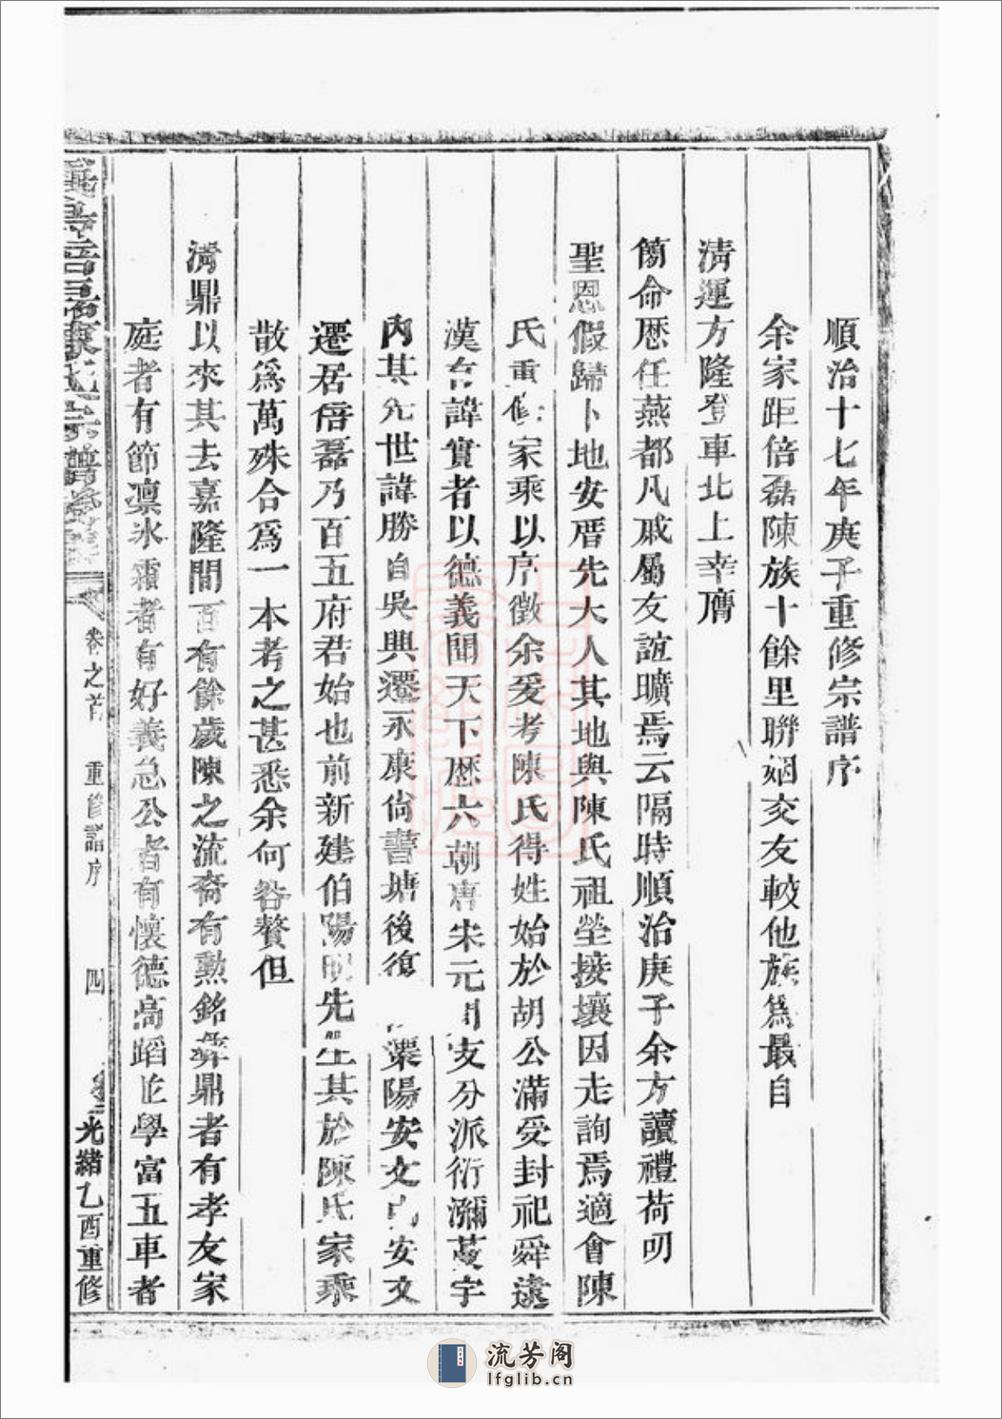 順治十七年庚子重修宗譜序
余家距倍磊陳族十餘里聯姻交友較他族爲最自
淸運方隆登車北上幸膺
簡命歷任燕都凡戚屬友誼曠焉云隔時順治庚子余方讀禮荷叨
聖恩假歸卜地安厝先大人其地與陳氏祖塋接壤因走詢焉適會陳
氏重修家乘以序徵余爰考陳氏得姓始於胡公滿受封祀舜遠
漢有諱實者以德義聞天下歷六朝唐宋元明支分派衍瀰蔓宇
內其先世諱勝自吳興遷永康尙書塘後復 溧陽安文由安文
遷居倍磊乃百五府君始也前新建伯陽明先生其於陳氏家乘
散爲萬殊合爲一本考之甚悉余何咎贅但
淸鼎以來其去嘉隆間百有餘歲陳之流裔有勳銘彝鼎者有孝友家
庭者有節凛氷霜者有好義急公者有懷德高蹈者學富五車者
陳氏宗譜
卷之首 重修譜序 四 光緖乙酉重修
流芳阁
lfglib.cn